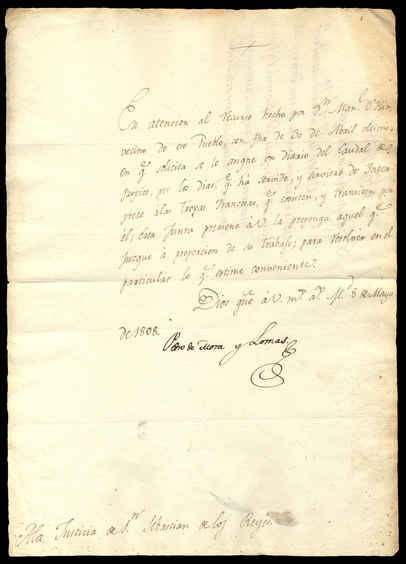 En atencion al recurso hecho por Dn. Manl.
vecino de ese Pueblo, con fha de 30 de Abril
en qe. solicita se le asigne un diario del Caudal de
Propios, por los dias, qe. ha servido, y servirá de Inter
prete álas Tropas Francesas, qe. existen, y transiten por
él; esta Junta previene á V. la proponga aquel qe.
juzgue á proporcion de su trabajo; para resolver en el
particular lo qe. estime conveniente.
Dios gue. á V. ms. as. Md. 8 de Mayo
de 1808.
Pedro de Mora y Lomas
Ala Justicia de Sn. Sebastian de los Reyes.